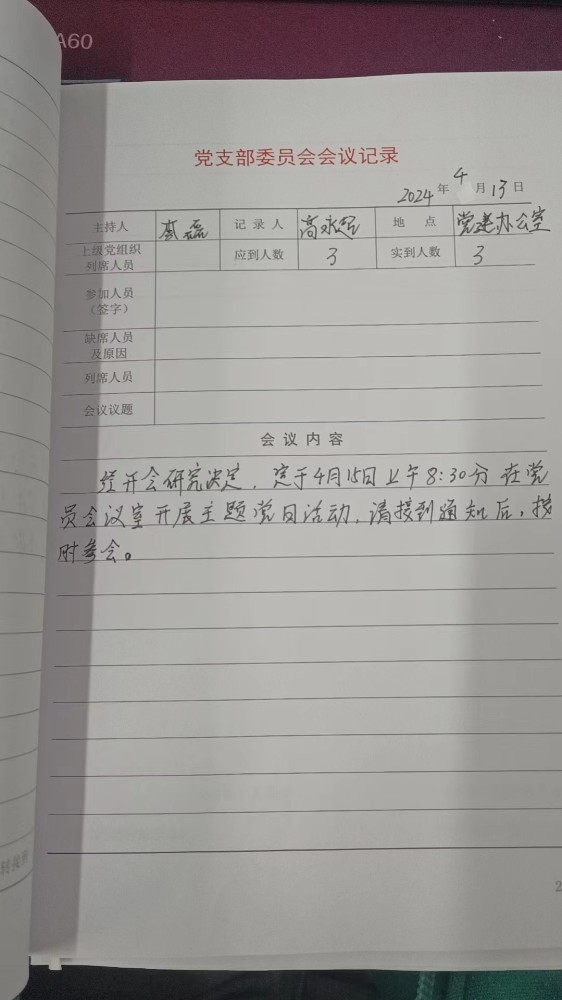 A60
党支部委员会会议记录
2024年4月13日
主持人 记录人 高永 地点 党建办公室
上级党组织列席人员 应到人数 3 实到人数 3
参加人员（签字）
缺席人员及原因
列席人员
会议议题
会议内容
经开会研究决定，定于4月15日上午8:30分在党
员会议室开展主题党日活动，请接到通知后，按
时参会。
2